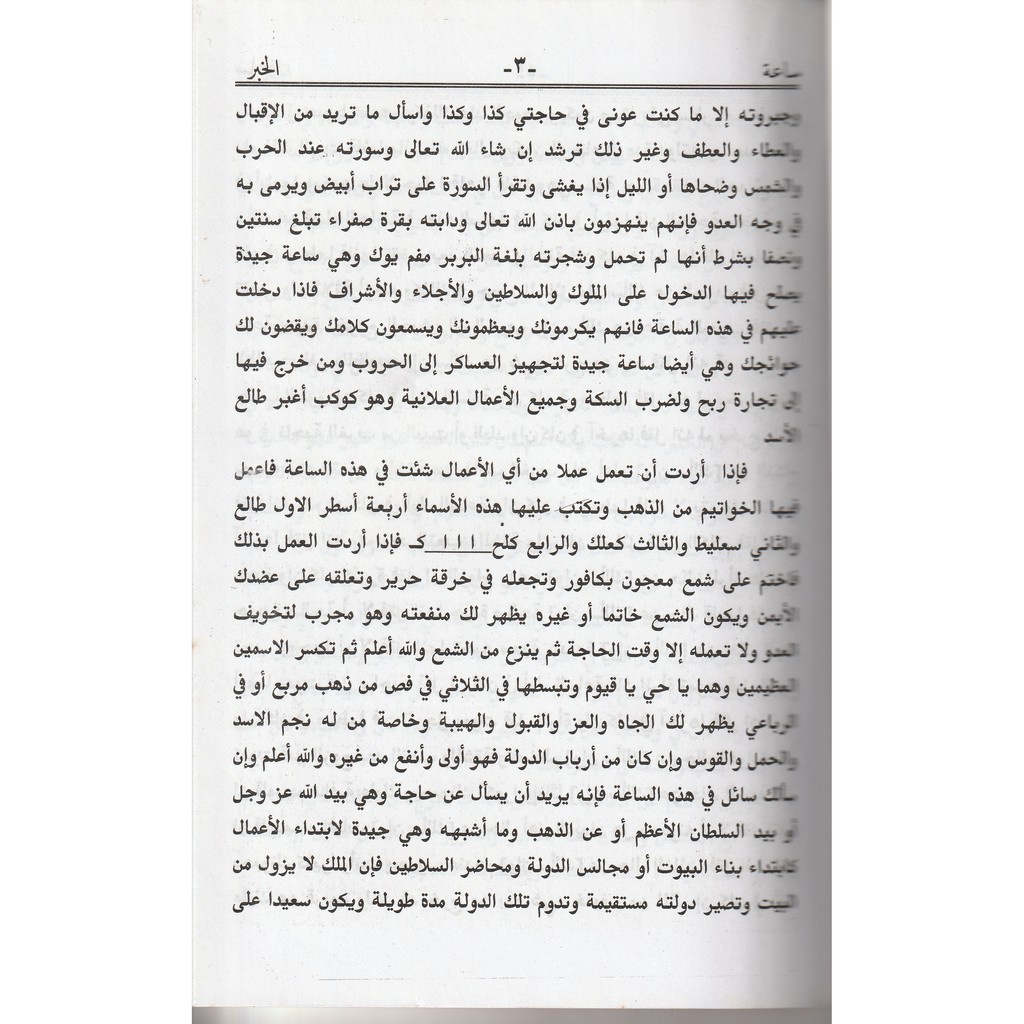 ساعة -٣- الخبر
وجبروته إلا ما كنت عونى في حاجتي كذا وكذا واسأل ما تريد من الإقبال
والعطاء والعطف وغير ذلك ترشد إن شاء الله تعالى وسورته عند الحرب
والشمس وضحاها أو الليل إذا يغشى وتقرأ السورة على تراب أبيض ويرمى به
في وجه العدو فإنهم ينهزمون باذن الله تعالى ودابته بقرة صفراء تبلغ سنتين
ونصفا بشرط أنها لم تحمل وشجرته بلغة البربر مفم يوك وهي ساعة جيدة
يصلح فيها الدخول على الملوك والسلاطين والأجلاء والأشراف فاذا دخلت
عليهم في هذه الساعة فانهم يكرمونك ويعظمونك ويسمعون كلامك ويقضون لك
حوائجك وهي أيضا ساعة جيدة لتجهيز العساكر إلى الحروب ومن خرج فيها
إلى تجارة ربح ولضرب السكة وجميع الأعمال العلانية وهو كوكب أغبر طالع
الأسد
فإذا أردت أن تعمل عملا من أي الأعمال شئت في هذه الساعة فاعمل
فيها الخواتيم من الذهب وتكتب عليها هذه الأسماء أربعة أسطر الاول طالع
والثاني سعليط والثالث كعلك والرابع كلح ا ا ا كـ فإذا أردت العمل بذلك
فاختم على شمع معجون بكافور وتجعله في خرقة حرير وتعلقه على عضدك
الأيمن ويكون الشمع خاتما أو غيره يظهر لك منفعته وهو مجرب لتخويف
العدو ولا تعمله إلا وقت الحاجة ثم ينزع من الشمع والله أعلم ثم تكسر الاسمين
العظيمين وهما يا حي يا قيوم وتبسطها في الثلاثي في فص من ذهب مربع أو في
الرباعي يظهر لك الجاه والعز والقبول والهيبة وخاصة من له نجم الاسد
والحمل والقوس وإن كان من أرباب الدولة فهو أولى وأنفع من غيره والله أعلم وإن
سألك سائل في هذه الساعة فإنه يريد أن يسأل عن حاجة وهي بيد الله عز وجل
أو بيد السلطان الأعظم أو عن الذهب وما أشبهه وهي جيدة لابتداء الأعمال
كابتداء بناء البيوت أو مجالس الدولة ومحاضر السلاطين فإن الملك لا يزول من
البيت وتصير دولته مستقيمة وتدوم تلك الدولة مدة طويلة ويكون سعيدا على